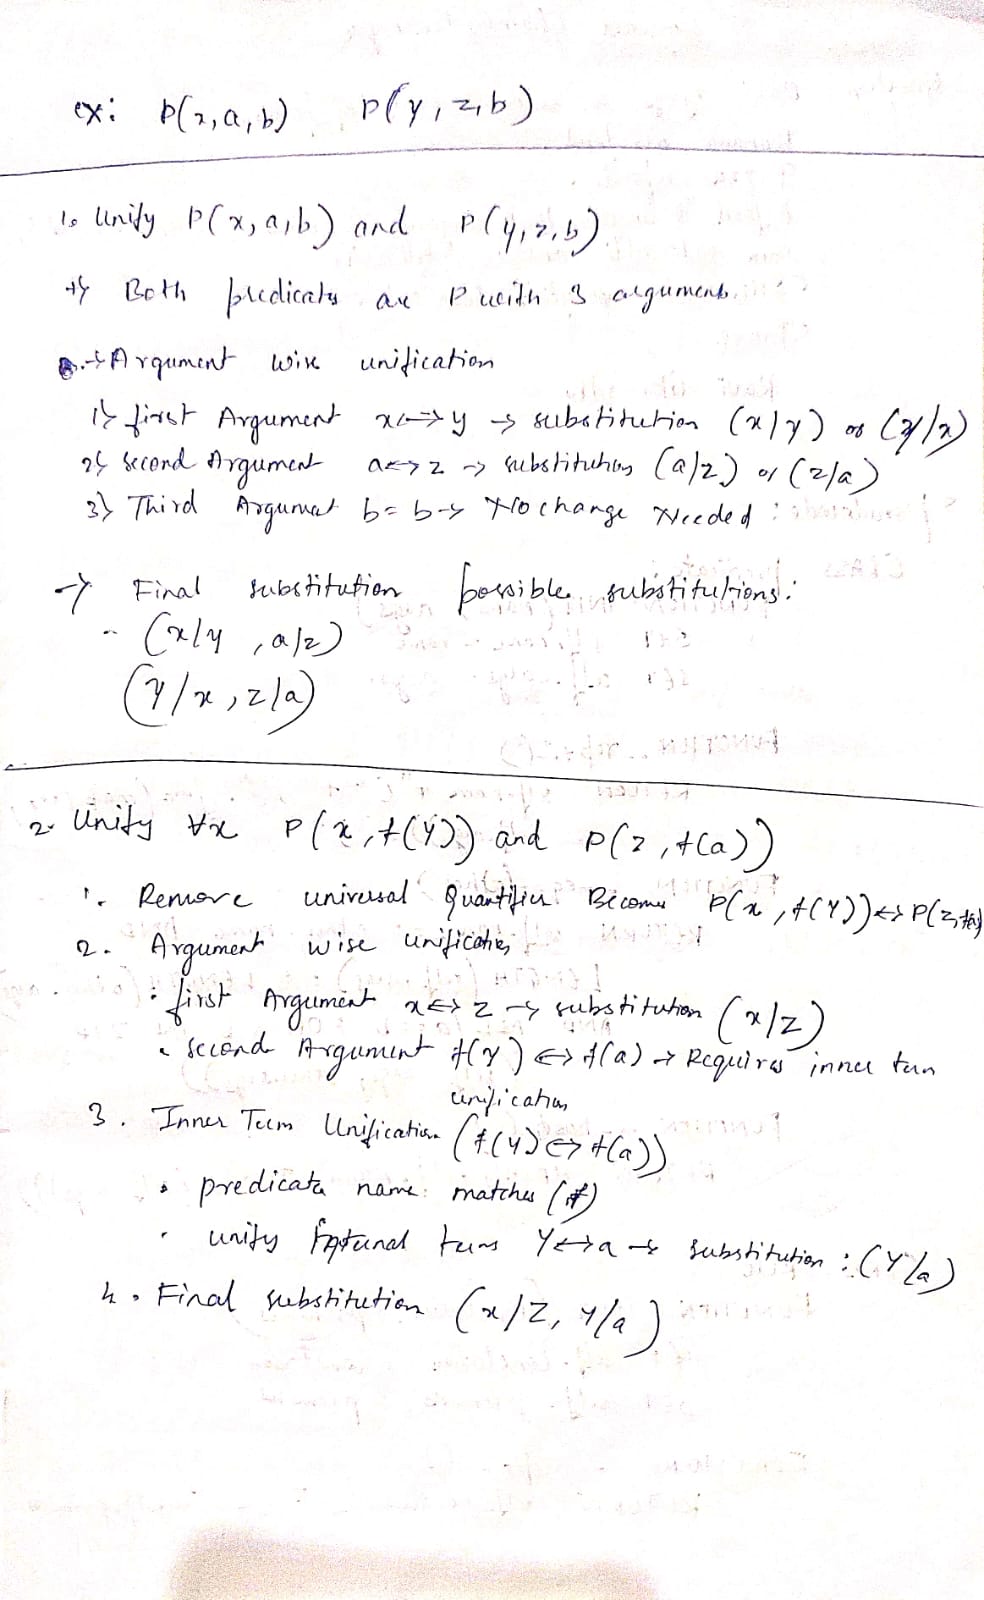 ex: P(x,a,b) P(y,z,b)
1. Unify P(x,a,b) and P(y,z,b)
Both predicates are P with 3 arguments.
→ Argument wise unification
1) first Argument x↔y → substitution (x/y) or (y/x)
2) Second Argument a↔z → substitution (a/z) or (z/a)
3) Third Argument b=b→ No change Needed
→ Final substitution possible substitutions:
(x/y ,a/z)
(y/x ,z/a)
2. Unify ∀x P(x,f(y)) and P(z,f(a))
1. Remove universal Quantifier. Becomes P(x,f(y))↔P(z,f(a))
2. Argument wise unification
• first Argument x↔z → substitution (x/z)
• second Argument f(y)↔f(a) → Requires inner term
unification
3. Inner Term Unification (f(y)↔f(a))
• predicate name matches (f)
• unify terms y↔a → substitution : (y/a)
4. Final substitution (x/z, y/a)